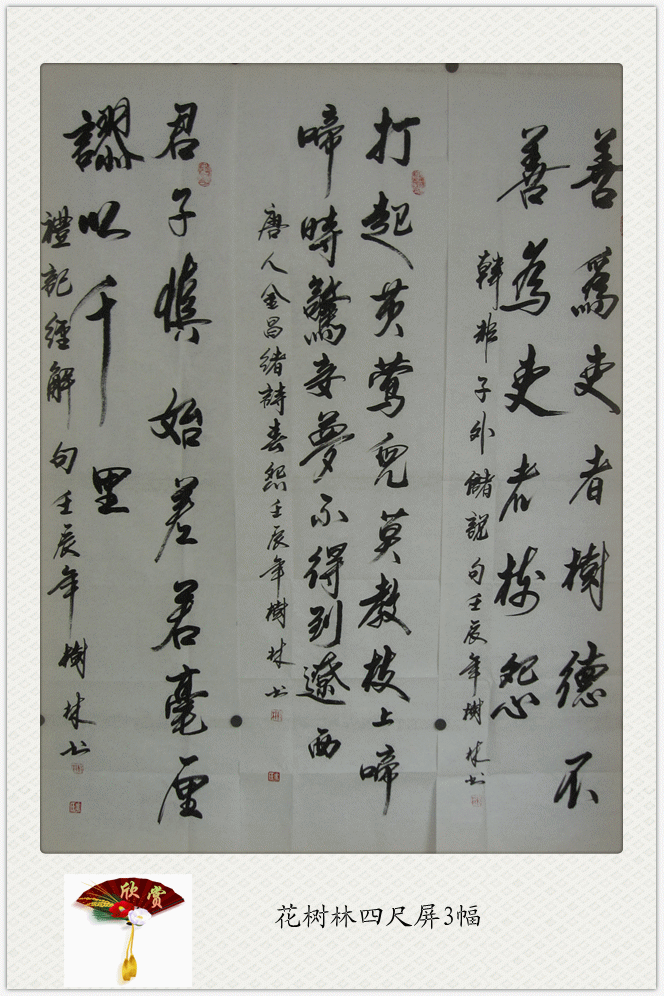 善爲吏者樹德不
善為吏者树怨
韓非子外儲說句壬辰年樹林书
打起黄莺兒莫教枝上啼
啼時驚妾夢不得到遼西
唐人金昌緒詩春怨壬辰年樹林书
君子慎始差若毫厘
謬以千里
禮記經解句壬辰年樹林书
欣赏
花树林四尺屏3幅